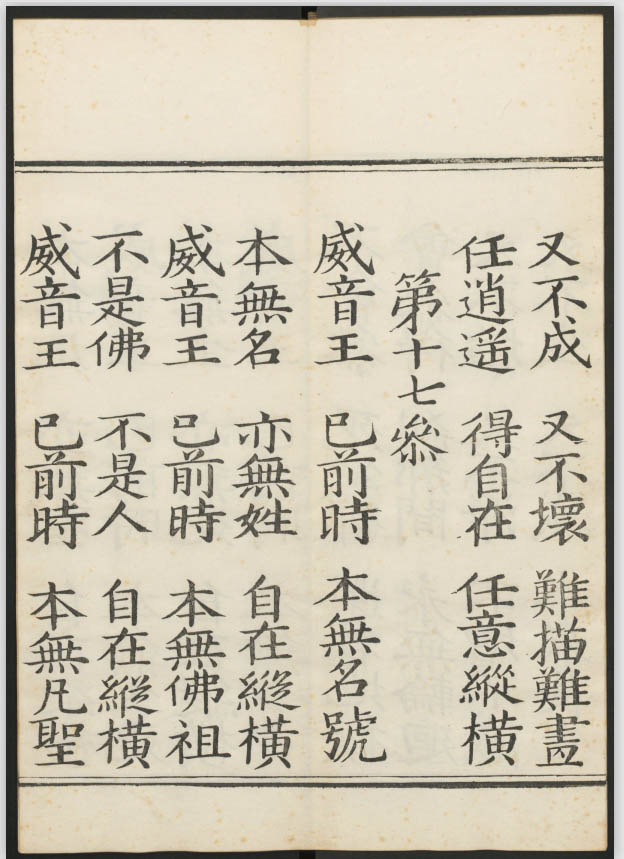 又不成 又不壞 難描難畫
任逍遥 得自在 任意縱橫
第十七參
威音王 已前時 本無名號
本無名 亦無姓 自在縱橫
威音王 已前時 本無佛祖
不是佛 不是人 自在縱橫
威音王 已前時 本無凡聖